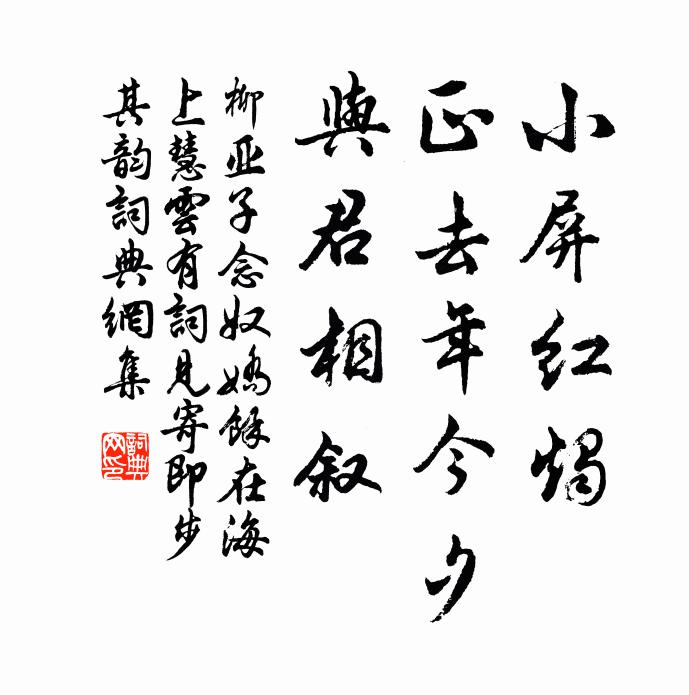 小屏红烛
正去年今夕
與君相叙
柳亚子念奴嬌餘在海
上慧雲有詞見寄即步
其韵詞典網集
詞典网印